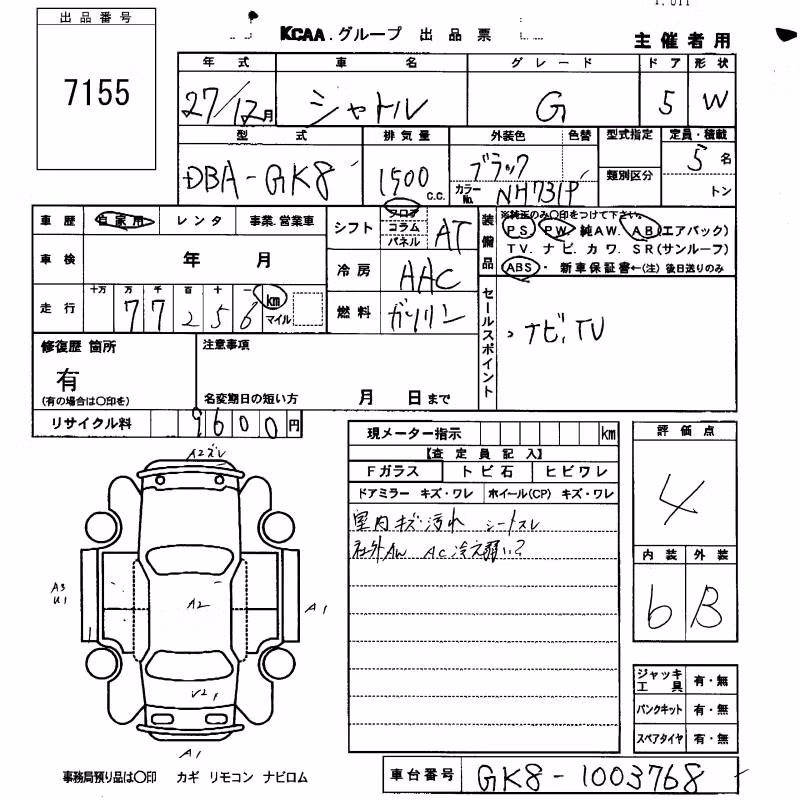 出品番号
7155
KCAA.グループ 出品票
主催者用
年式 車名 グレード ドア 形状
27/12月 シャトル G 5 W
型式 排気量 外装色 色替 型式指定 定員・積載
DBA-GK8 1500 c.c. ブラック カラーNo. NH731P 類別区分 5名 トン
車歴 自家用 レンタ 事業.営業車
シフト フロア コラム パネル AT
装備品 ※純正のみ〇印をつけて下さい。
PS PW 純AW. AB(エアバック)
TV. ナビ. カワ. SR(サンルーフ)
ABS ・ 新車保証書←(注) 後日送りのみ
車検 年 月
冷房 AAC
走行 十万 万 千 百 十 一
77256 km マイル
燃料 ガソリン
セールスポイント
ナビ, TV
修復歴 箇所 注意事項
有
(有の場合は〇印を)
名変期日の短い方 月 日まで
リサイクル料 9600円
現メーター指示 km
【査定員記入】
Fガラス トビ石 ヒビワレ
ドアミラー キズ・ワレ ホイール(CP) キズ・ワレ
室内キズ汚れ シートスレ
社外AW AC冷え弱い?
評価点
4
内装 外装
6 B
A2ズレ
A3
U1
A2
A1
V2,
A1
ジャッキ工具 有・無
パンクキット 有・無
スペアタイヤ 有・無
事務局預り品は〇印 カギ リモコン ナビロム
車台番号 GK8-1003768